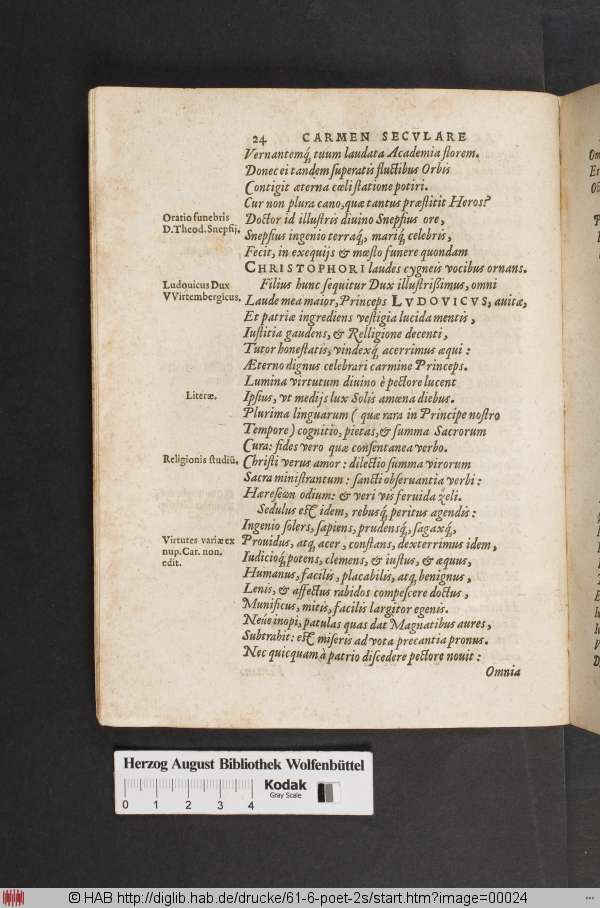 24 CARMEN SECVLARE
Vernantemq́; tuum laudata Academia florem.
Donec ei tandem ſuperatis fluctibus Orbis
Contigit æterna cœli ſtatione potiri.
Cur non plura cano, quæ tantus præſtitit Heros?
Oratio funebris
D. Theod. Snepfij.
Doctor id illuſtris diuino Snepfius ore,
Snepfius ingenio terraq́;, mariq́; celebris,
Fecit, in exequijs & mœſto funere quondam
CHRISTOPHORI laudes cygneis vocibus ornans.
Ludouicus Dux
VVirtembergicus.
Filius hunc ſequitur Dux illuſtriſſimus, omni
Laude mea maior, Princeps LVDOVICVS, auitæ,
Et patriæ ingrediens veſtigia lucida mentis,
Iuſtitia gaudens, & Relligione decenti,
Tutor honeſtatis, vindexq́; acerrimus æqui:
Æterno dignus celebrari carmine Princeps.
Lumina virtutum diuino è pectore lucent
Literæ.
Ipſius, vt medijs lux Solis amœna diebus.
Plurima linguarum (quæ rara in Principe noſtro
Tempore) cognitio, pietas, & ſumma Sacrorum
Cura: fides vero quæ conſentanea verbo.
Religionis ſtudiū.
Chriſti verus amor: dilectio ſumma virorum
Sacra miniſtrantum: ſancti obſeruantia verbi:
Hæreſeων odium: & veri vis feruida zeli.
Sedulus eſt idem, rebusq́; peritus agendis:
Ingenio ſolers, ſapiens, prudensq́;, ſagaxq́;,
Virtutes variæ ex
nup. Car. non.
edit.
Prouidus, atq́; acer, conſtans, dexterrimus idem,
Iudicioq́; potens, clemens, & iuſtus, & æquus,
Humanus, facilis, placabilis, atq́; benignus,
Lenis, & affectus rabidos compeſcere doctus,
Munificus, mitis, facilis largitor egenis.
Neúe inopi, patulas quas dat Magnatibus aures,
Subtrahit: eſt miſeris ad vota precantia pronus.
Nec quicquam à patrio diſcedere pectore nouit:
Omnia
Herzog August Bibliothek Wolfenbüttel
0 1 2 3 4
Kodak
Gray Scale
© HAB http://diglib.hab.de/drucke/61-6-poet-2s/start.htm?image=00024